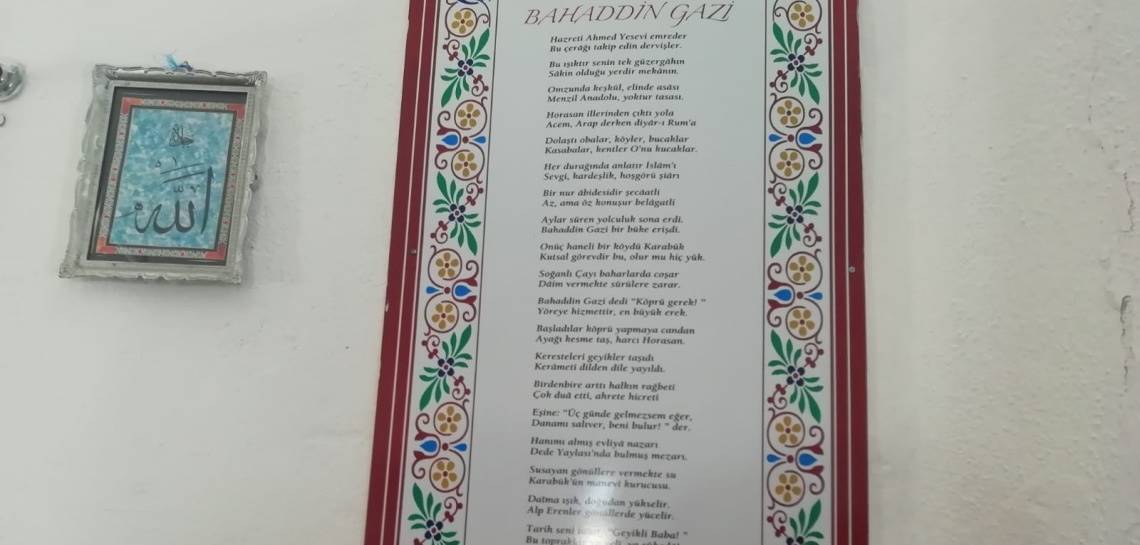 BAHADDİN GAZİ
Hazreti Ahmed Yesevi emreder
Bu çerâğı takip edin dervişler.
Bu ışıktır senin tek güzergâhın
Sâkin olduğu yerdir mekânın.
Omzunda keşkül, elinde asâsı
Menzil Anadolu, yoktur tasası.
Horasan illerinden çıktı yola
Acem, Arap derken diyâr-ı Rum'a
Dolaştı obalar, köyler, bucaklar
Kasabalar, kentler O'nu kucaklar.
Her durağında anlatır İslâm'ı
Sevgi, kardeşlik, hoşgörü şiârı
Bir nur âbidesidir şecâatli
Az, ama öz konuşur belâgatli
Aylar süren yolculuk sona erdi.
Bahaddin Gazi bir büke erişdi.
Onüç haneli bir köydü Karabük
Kutsal görevdir bu, olur mu hiç yük.
Soğanlı Çayı baharlarda coşar
Dâim vermekte sürülere zarar.
Bahaddin Gazi dedi "Köprü gerek! "
Yöreye hizmettir, en büyük erek.
Başladılar köprü yapmaya candan
Ayağı kesme taş, harcı Horasan.
Keresteleri geyikler taşıdı
Kerâmeti dilden dile yayıldı.
Birdenbire arttı halkın rağbeti
Çok duâ etti, ahrete hicreti
Eşine: "Üç günde gelmezsem eğer,
Danamı salıver, beni bulur! " der.
Hanımı almış evliyâ nazarı
Dede Yaylası'nda bulmuş mezarı.
Susayan gönüllere vermekte su
Karabük'ün manevi kurucusu.
Daima ışık, doğudan yükselir.
Alp Erenler gönüllerde yücelir.
Tarih seni "Geyikli Baba! "
Bu
الله